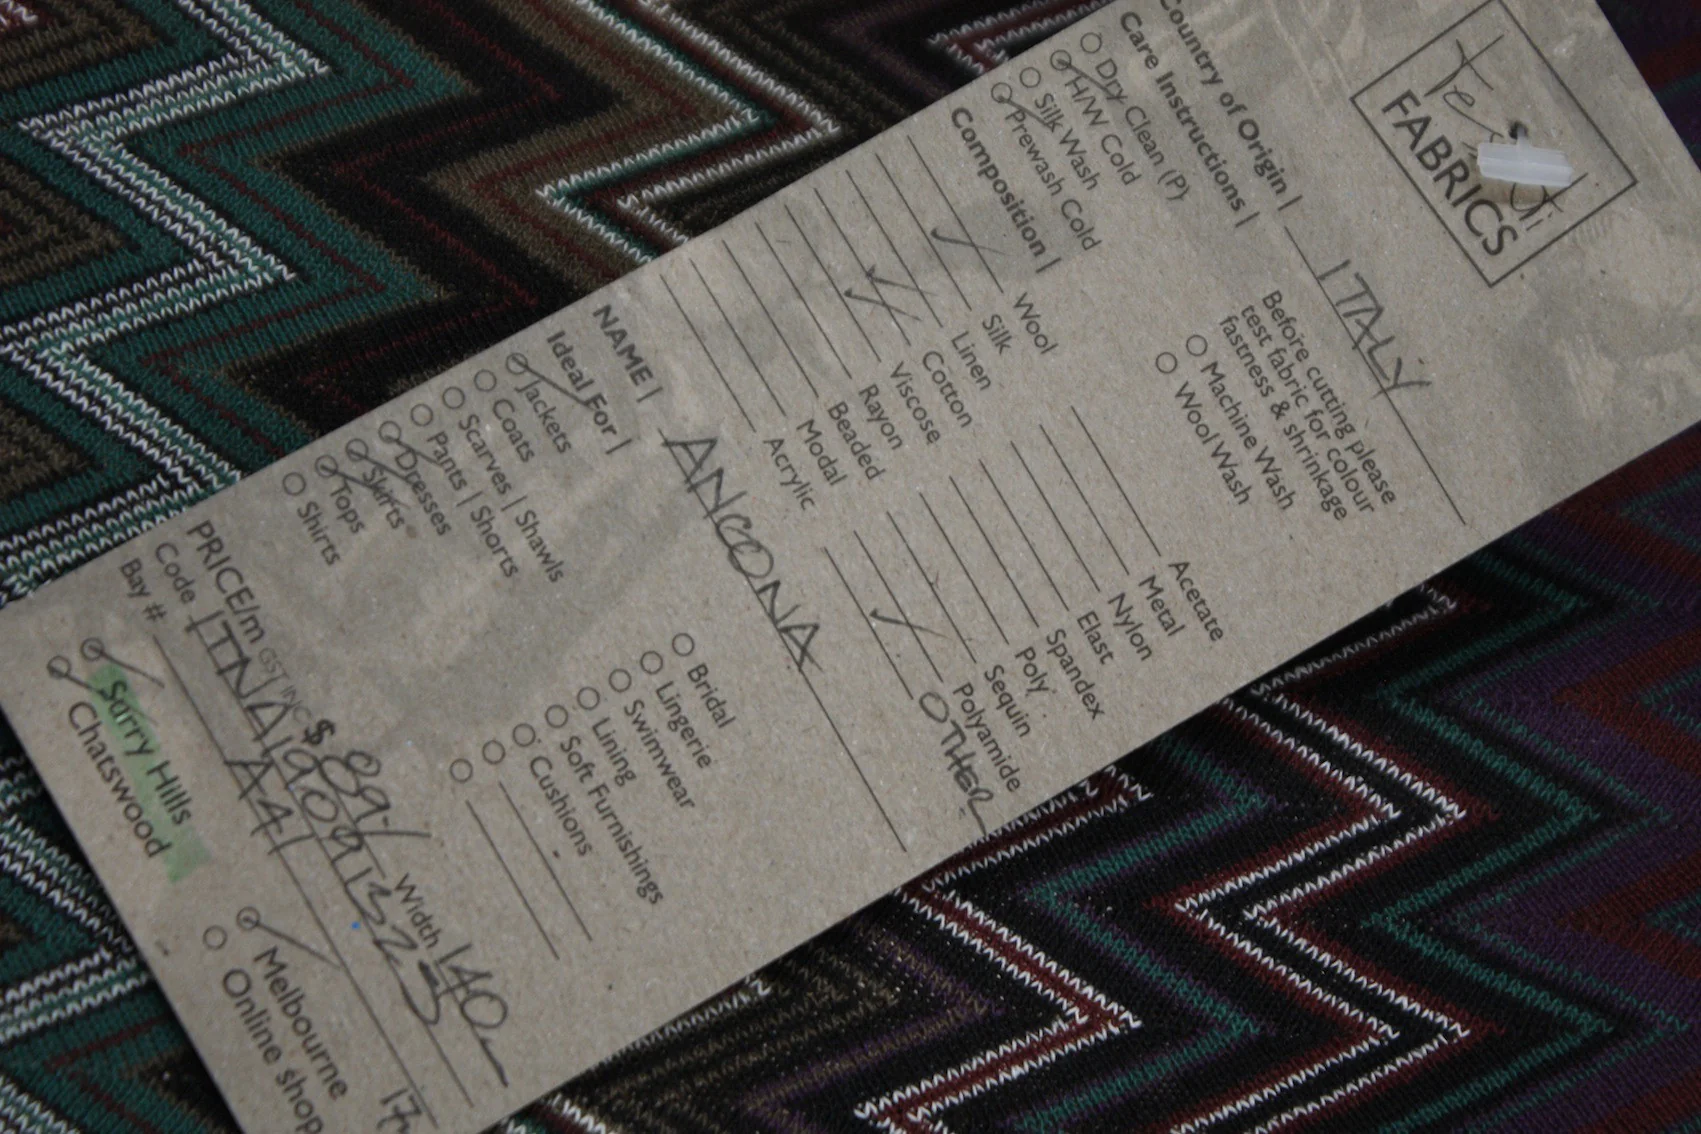 FABRICS
Country of Origin | ITALY
Care Instructions |
Before cutting please
test fabric for colour
fastness & shrinkage
Dry Clean (P)
H/W Cold
Silk Wash
Prewash Cold
Machine Wash
Wool Wash
Composition |
Wool
Silk
Linen
Cotton
Viscose
Rayon
Beaded
Modal
Acrylic
Acetate
Metal
Nylon
Elast
Spandex
Poly
Sequin
Polyamide
OTHER
NAME | ANCONA
Ideal For |
Jackets
Coats
Scarves | Shawls
Pants | Shorts
Dresses
Skirts
Tops
Shirts
Bridal
Lingerie
Swimwear
Lining
Soft Furnishings
Cushions
PRICE/m GST INC $89- Width 140
Code
Bay # A41
Surry Hills
Chatswood
Melbourne
Online shop